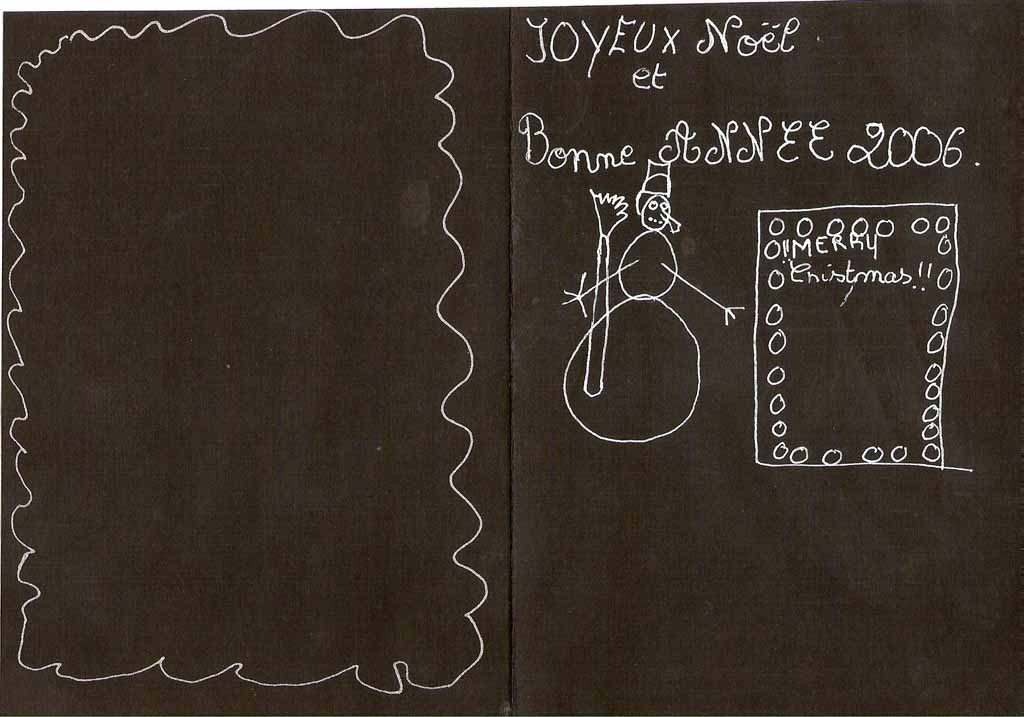 JOYEUX Noël
et
Bonne ANNEE 2006.
!!MERRY
Christmas!!